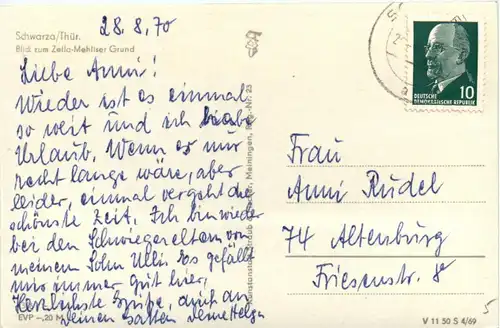 28.8.70
Schwarza/Thür.
Blick zum Zella-Mehliser Grund
Liebe Anni!
Wieder ist es einmal
so weit und ich habe
Urlaub. Wenn es nur
recht lange wäre, aber
leider, einmal vergeht die
schönste Zeit. Ich bin wieder
bei den Schwiegereltern von
meinem Sohn Ulli. Es gefällt
mir immer gut hier,
Herzlichste Grüße, auch an
Deinen Gatten Deine Helga
EVP -,20 M
Meiningen,
V 11 50 S 4/69
10
DEUTSCHE
DEMOKRATISCHE REPUBLIK
Frau
Anni Rudel
74 Altenburg
Friesenstr. 8
5